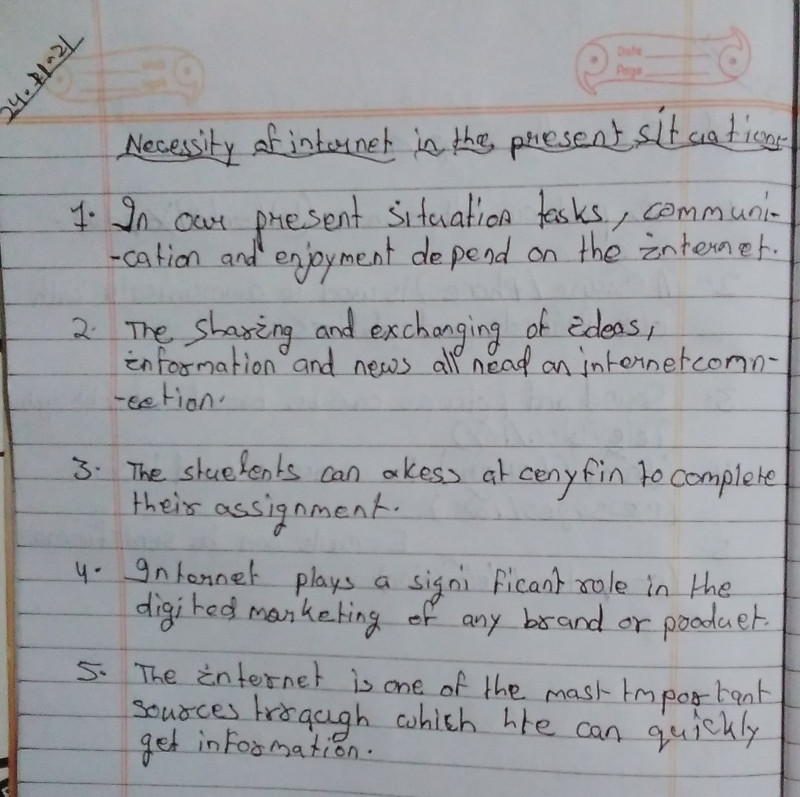 Date
Page
Necessity of internet in the present situation
1. In our present situation tasks, communi-
-cation and enjoyment depend on the internet.
2. The sharing and exchanging of ideas,
information and news all nead an internet comn-
-eetion.
3. The students can akess at cenyfin to complete
their assignment.
4. Internet plays a signi ficant role in the
digited marketing of any brand or pooduet.
5. The internet is one of the mast important
sources trrqcugh which hte can quickly
get information.